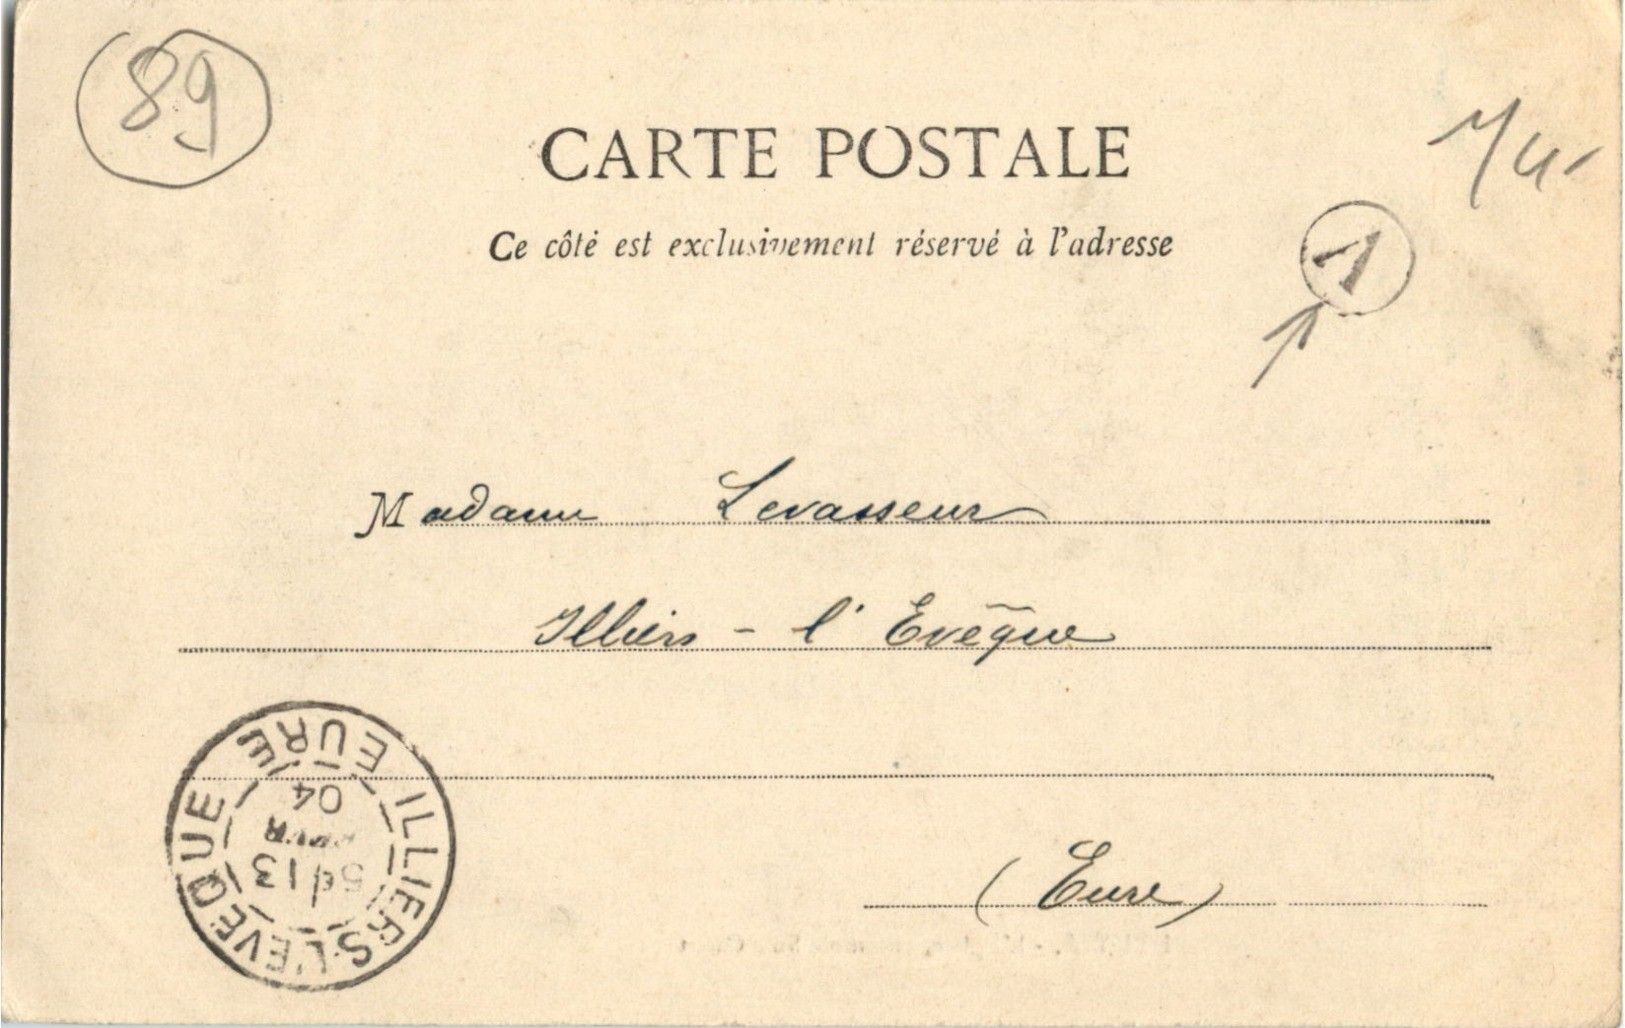 89
CARTE POSTALE
Ce côté est exclusivement réservé à l'adresse
Madame Levasseur
Illiers - l'Evêque
(Eure)
ILLIERS-L'EVÊQUE
EURE
13
04